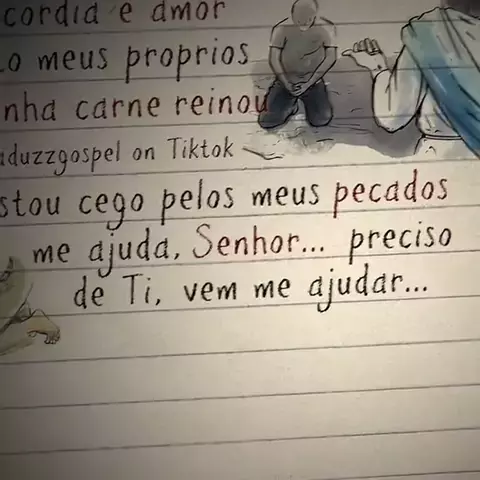 cordia e amor
o meus proprios
nha carne reinou
duzzgospel on Tiktok
stou cego pelos meus pecados
me ajuda, Senhor... preciso
de Ti, vem me ajudar...